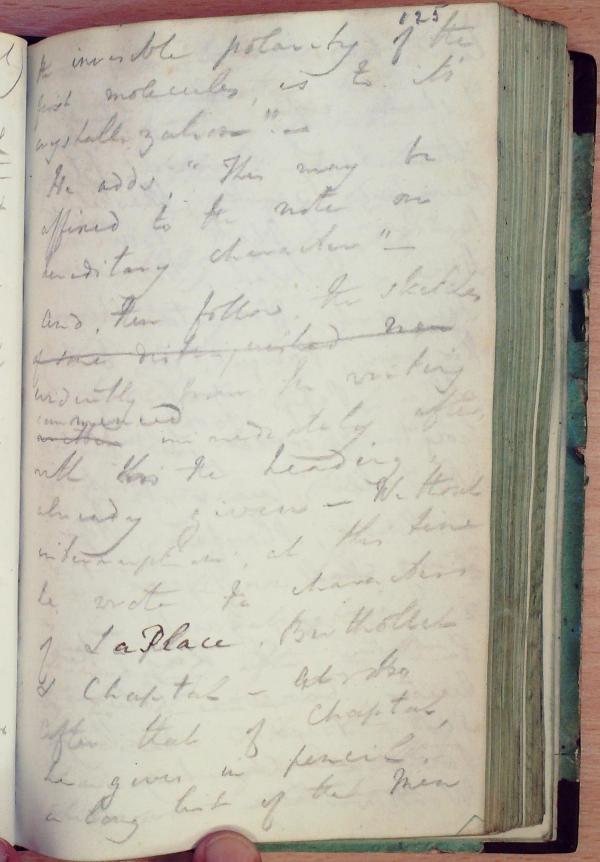 125
the invisible polarity of the
first molecules, is to its
crystallization" —
He adds, "This may be
affixed to the note on
hereditary character" —
and, then follow, the sketches
of some distinguished men
evidently from the writing
commenced
written immediately after,
with this the heading,
already given — Without
interruption, at this time
he wrote the characters
of LaPlace, Berthollet
& Chaptal —
after that of Chaptal,
he gives in pencil,
a long list of the Men